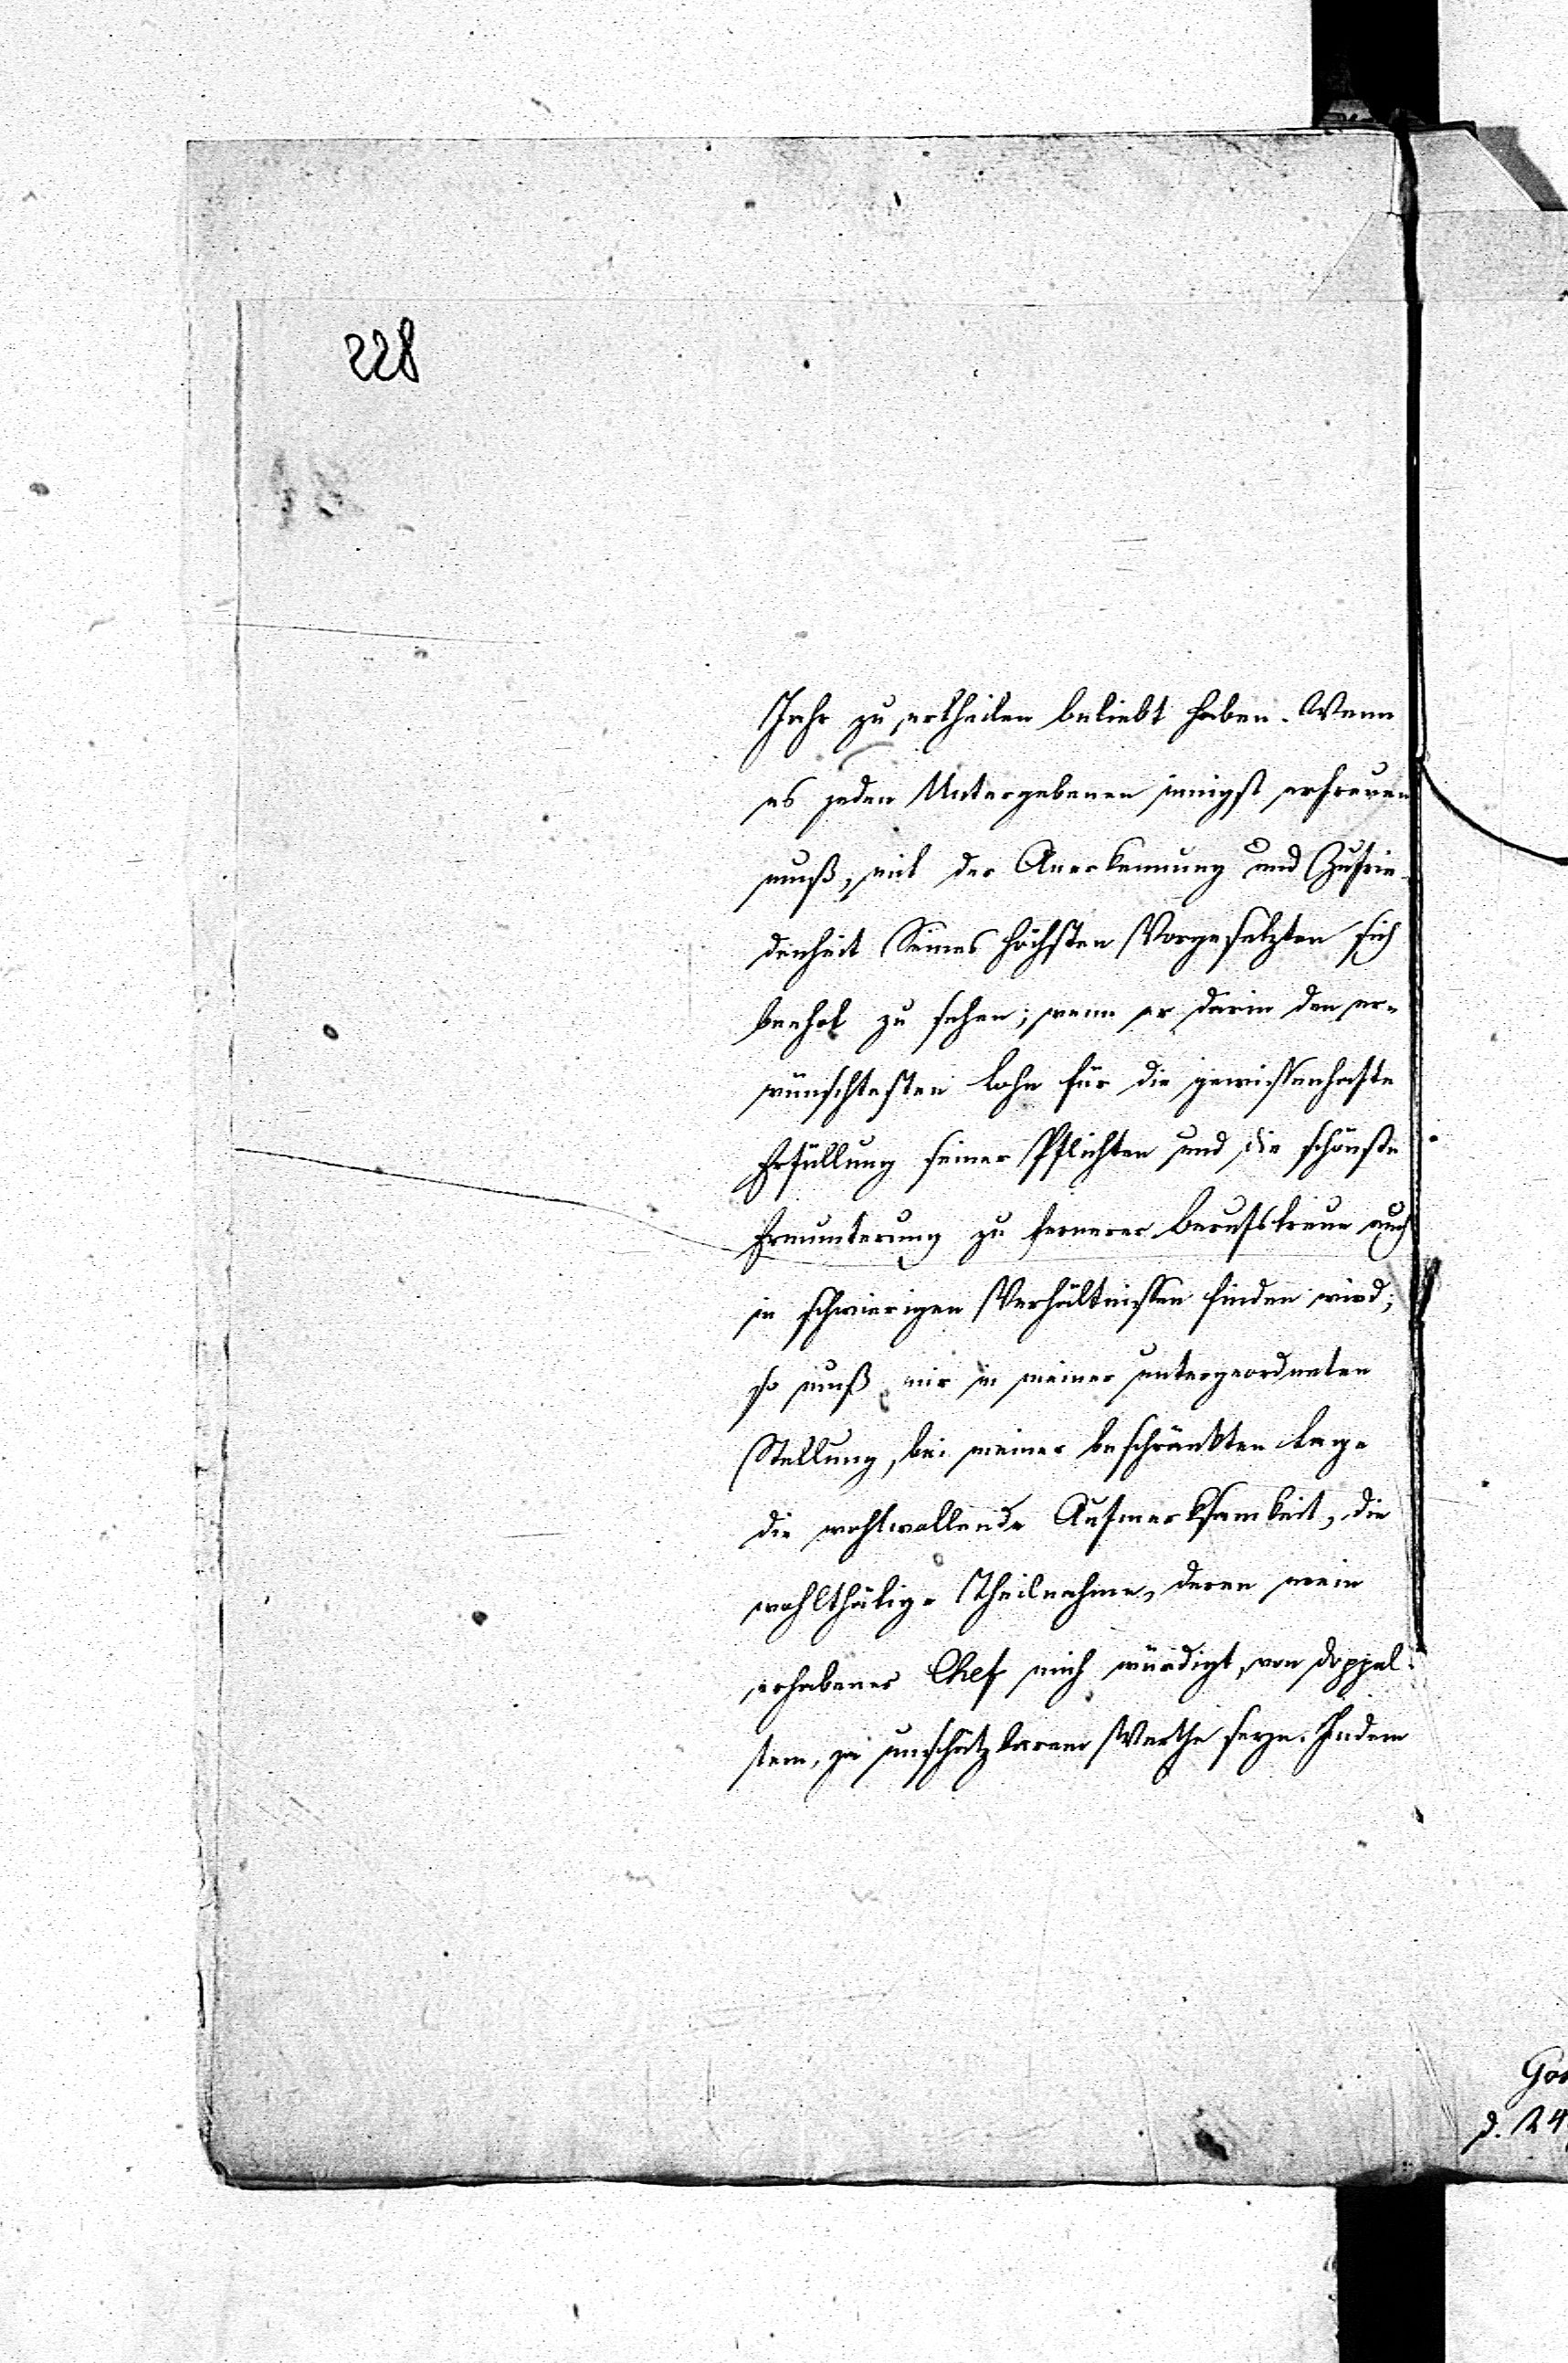 228
Jahr zu ertheilen beliebt haben. Wenn
es jeden Untergebenen innigst erfreuen
muß, mit der Anerkennung und Zufrie-
denheit Seines höchsten Vorgesetzten sich
beehrt zu sehen; wenn er darin den er-
wünschtesten Lohn für die gewissenhafte
Erfüllung seiner Pflichten und die schönste
Ermunterung zu fernerer Berufstreue auch
in schwierigen Verhältnissen finden wird;
so muß mir in meiner untergeordneten
Stellung, bei meiner beschränkten Lage
die wohlwollende Aufmerksamkeit, die
wohlthätige Theilnahme, deren mein
erhabener Chef mich würdigt, von doppel-
tem, ja unschätzbarem Werthe seyn. Indem
d. 24